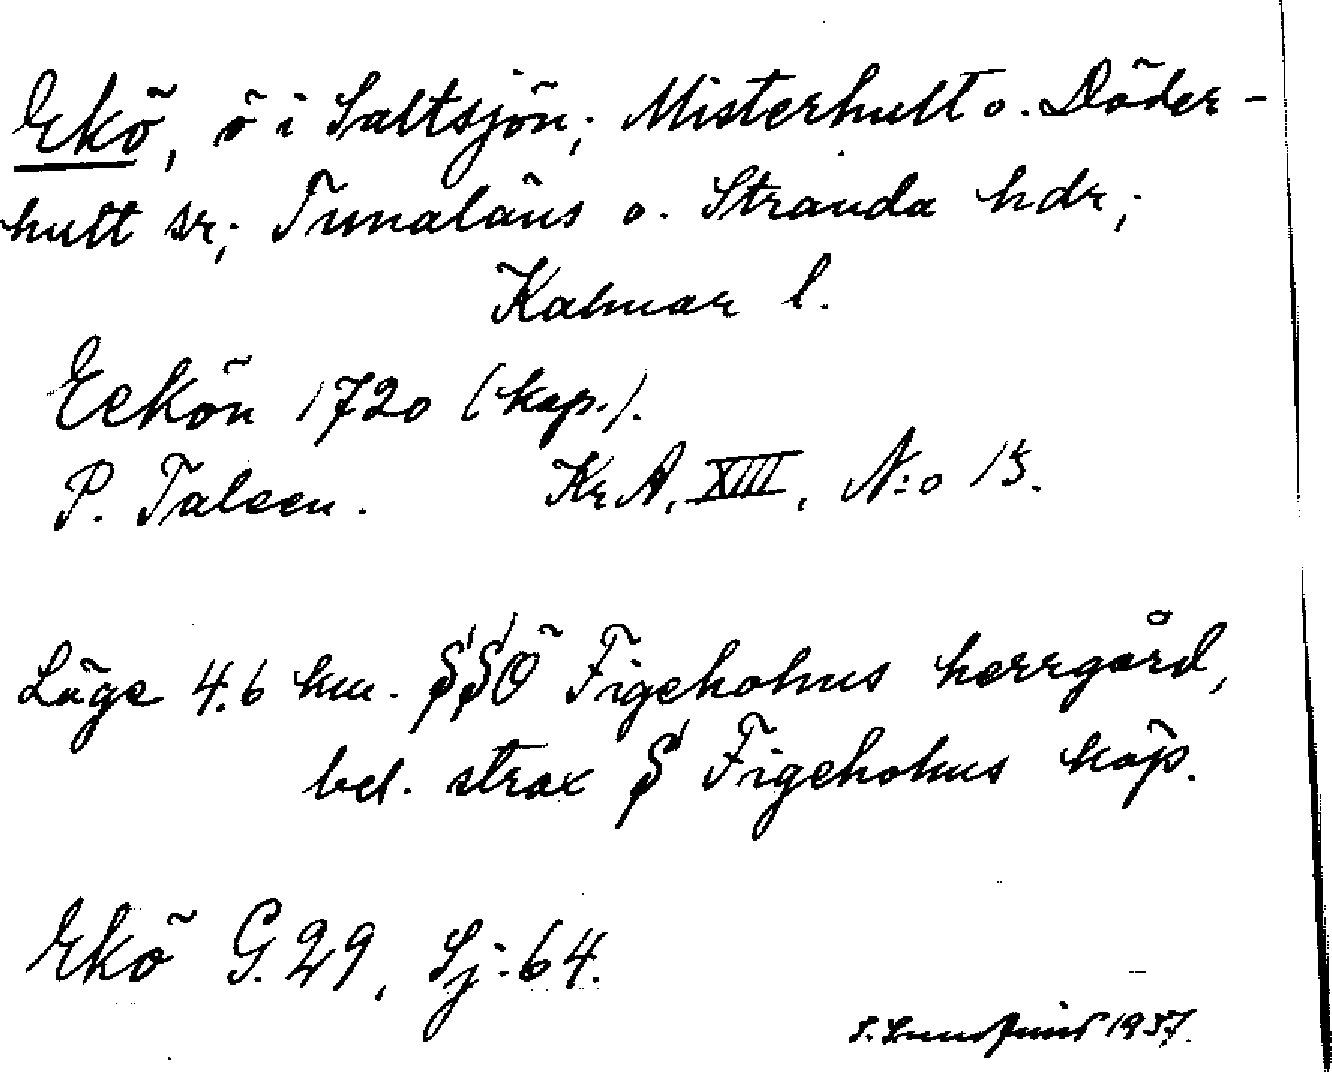 Ekö, ö i Saltsjön; Misterhult o. Döder-
hult sr; Tunaläns o. Stranda hdr;
Kalmar l.
Eekön 1720 (kop.).
P. Talsen. Kr.A, XIII, N:o 15.
Läge 4.6 km. SSÖ Figeholms herrgård,
bel. strax S Figeholms köp.
Ekö G. 29, Sj: 64.
1937.